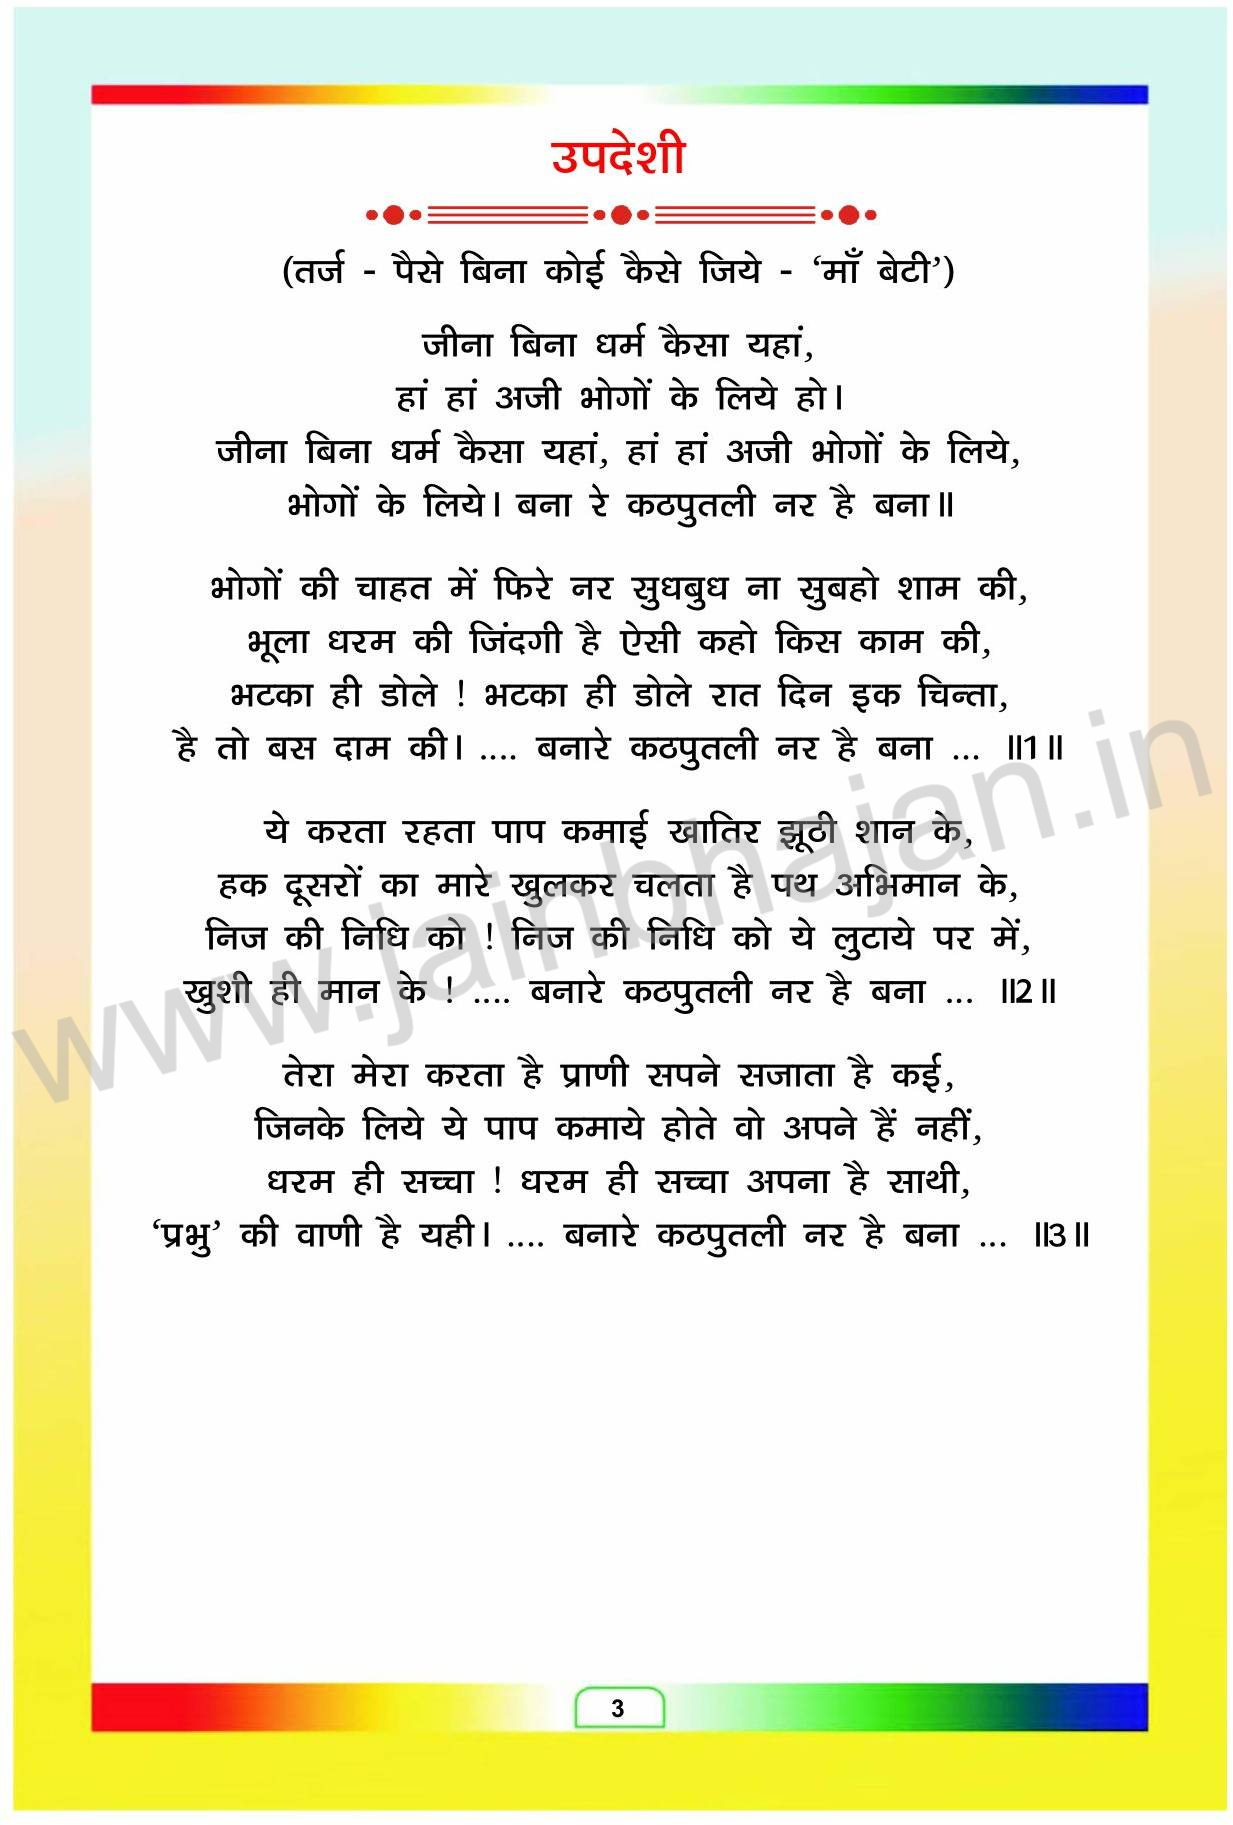 उपदेशी
(तर्ज - पैसे बिना कोई कैसे जिये - ‘माँ बेटी’)
जीना बिना धर्म कैसा यहां,
हां हां अजी भोगों के लिये हो।
जीना बिना धर्म कैसा यहां, हां हां अजी भोगों के लिये,
भोगों के लिये। बना रे कठपुतली नर है बना॥
भोगों की चाहत में फिरे नर सुधबुध ना सुबहो शाम की,
भूला धरम की जिंदगी है ऐसी कहो किस काम की,
भटका ही डोले ! भटका ही डोले रात दिन इक चिन्ता,
है तो बस दाम की। .... बनारे कठपुतली नर है बना ... ॥1॥
ये करता रहता पाप कमाई खातिर झूठी शान के,
हक दूसरों का मारे खुलकर चलता है पथ अभिमान के,
निज की निधि को ! निज की निधि को ये लुटाये पर में,
खुशी ही मान के ! .... बनारे कठपुतली नर है बना ... ॥2॥
तेरा मेरा करता है प्राणी सपने सजाता है कई,
जिनके लिये ये पाप कमाये होते वो अपने हैं नहीं,
धरम ही सच्चा ! धरम ही सच्चा अपना है साथी,
‘प्रभु’ की वाणी है यही। .... बनारे कठपुतली नर है बना ... ॥3॥
www.jainbhajan.in
3